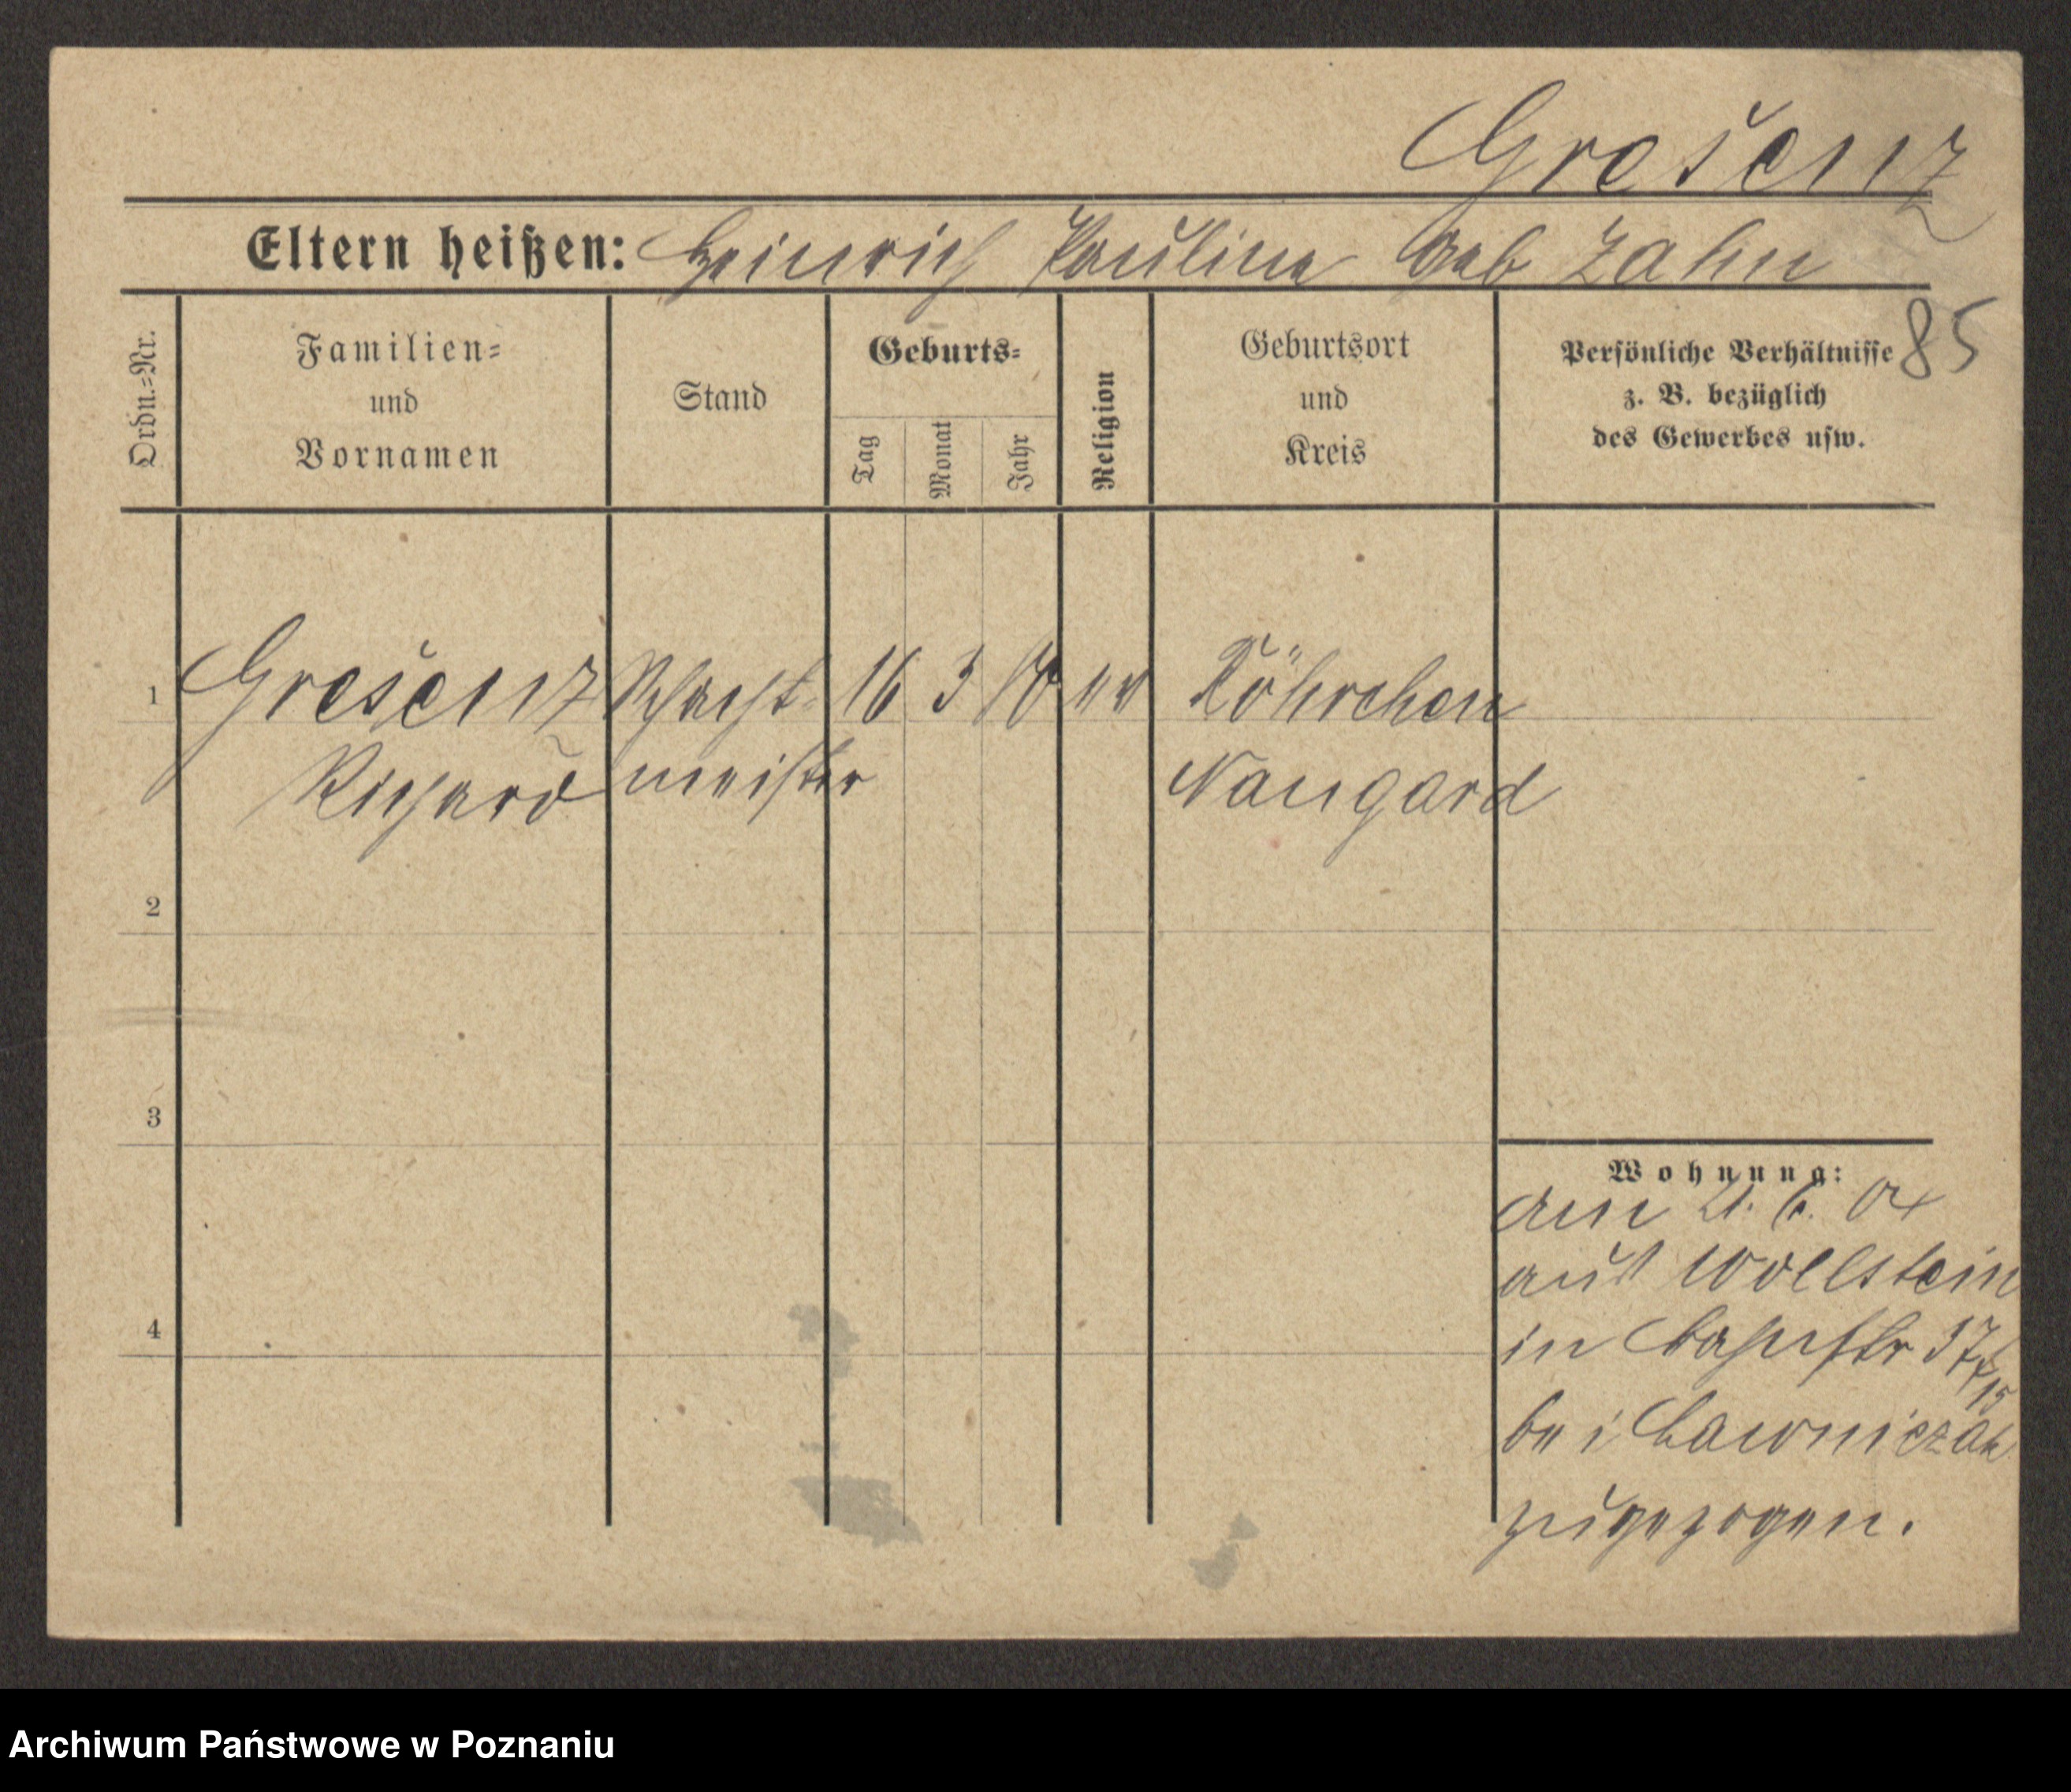 Grešenz
Eltern heißen: Heinrich Pauline geb Zahn
85
Ordn.=Nr.
Familien=
und
Vornamen
Stand
Geburts=
Tag
Monat
Jahr
Religion
Geburtsort
und
Kreis
Persönliche Verhältnisse
z. B. bezüglich
des Gewerbes usw.
1 Grešenz Schacht- 16 3 ev Röhrchen
Richard meister Naugard
2
3
4
Wohnung:
am 21. 6. 04
aus Wollstein
in 37
bei Lawniczak
zugezogen.
Archiwum Państwowe w Poznaniu